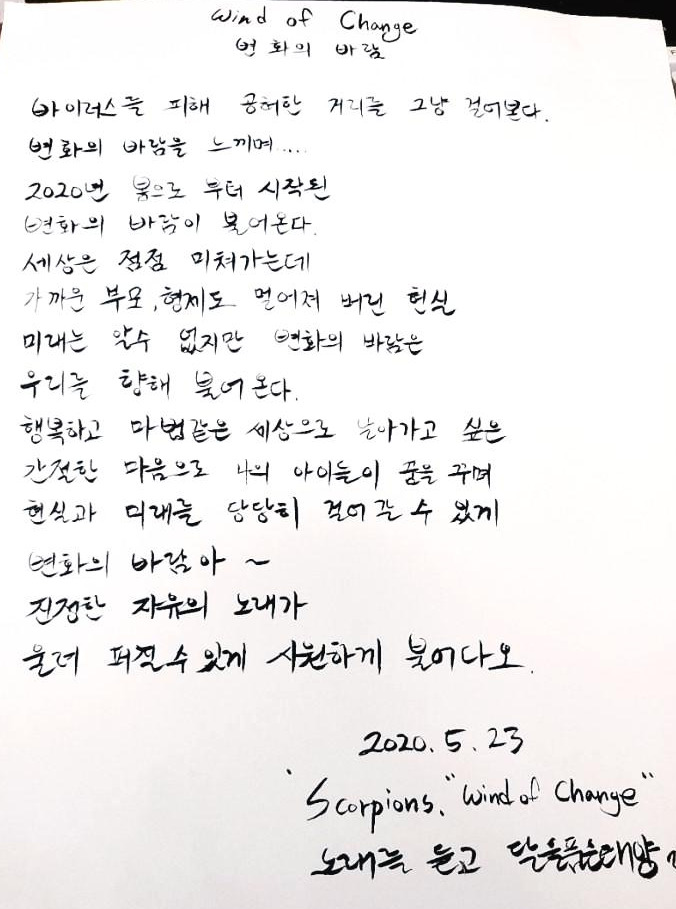 Wind of Change
변화의 바람
바이러스를 피해 공허한 거리를 그냥 걸어본다.
변화의 바람을 느끼며....
2020년 봄으로 부터 시작된
변화의 바람이 불어온다.
세상은 점점 미쳐가는데
가까운 부모, 형제도 멀어져 버린 현실
미래는 알수 없지만 변화의 바람은
우리를 향해 불어온다.
행복하고 마법같은 세상으로 날아가고 싶은
간절한 마음으로 나의 아이들이 꿈을 꾸며
현실과 미래를 당당히 걸어갈 수 있게
변화의 바람아 ~
진정한 자유의 노래가
울려 퍼질수 있게 시원하게 불어다오.
2020. 5. 23
Scorpions. "Wind of Change"
노래를 듣고 달을품은태양